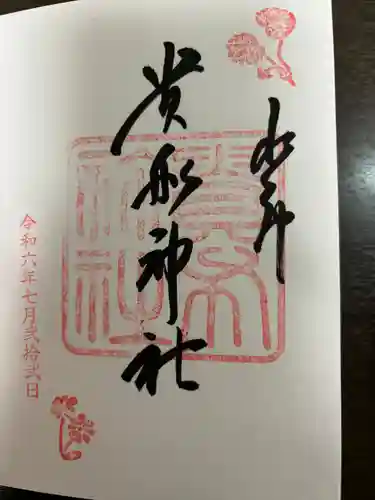 水神
貴船神社
令和六年七月弐拾弐日